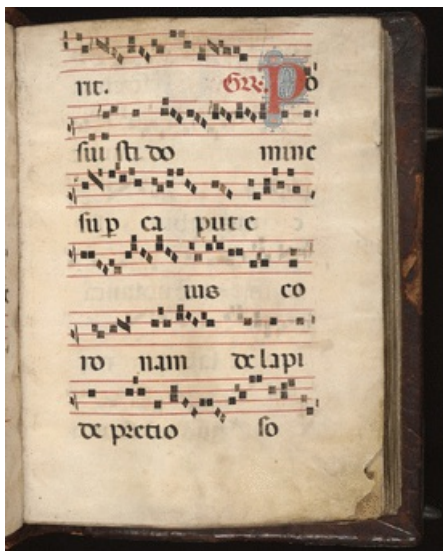 rit. Gr. Po
sui sti do mine
sup ca put e
ius co
ro nam de lapi
de precio so